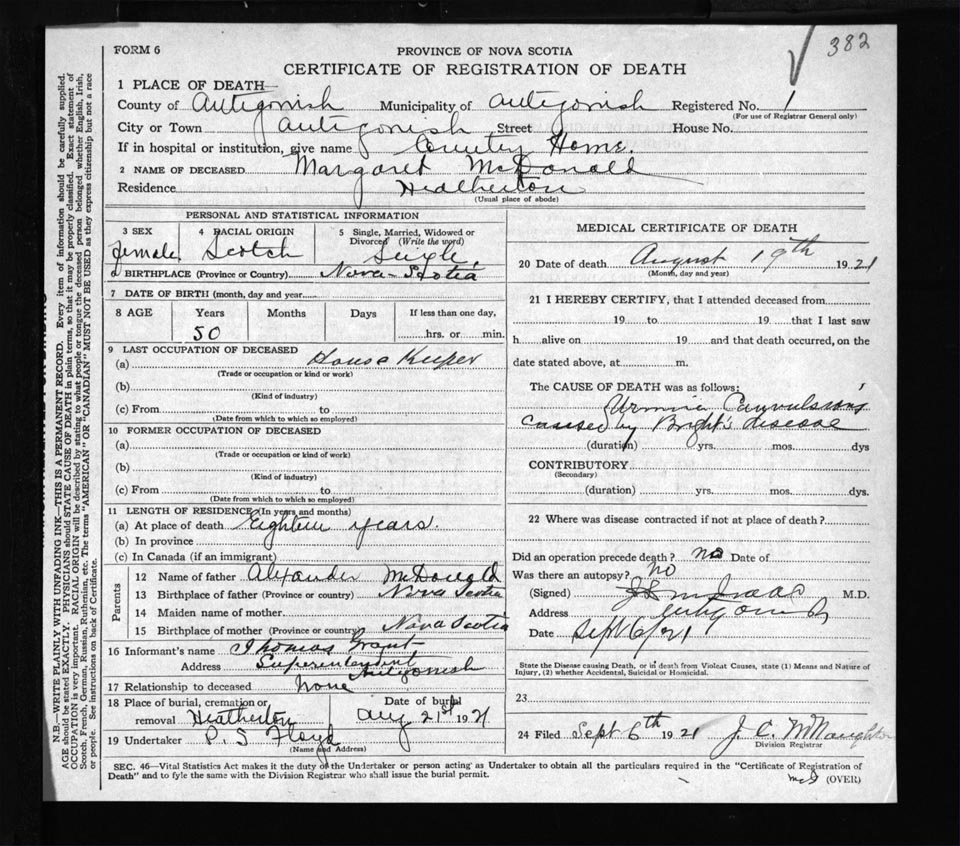 382
FORM 6
PROVINCE OF NOVA SCOTIA
CERTIFICATE OF REGISTRATION OF DEATH
1 PLACE OF DEATH—
County of Antigonish Municipality of Antigonish Registered No. 1
(For use of Registrar General only)
City or Town Antigonish Street House No.
If in hospital or institution, give name County Home.
2 NAME OF DECEASED Margaret McDonald
Residence Heatherton
(Usual place of abode)
PERSONAL AND STATISTICAL INFORMATION
3 SEX female
4 RACIAL ORIGIN Scotch
5 Single, Married, Widowed or Divorced (Write the word) Single
6 BIRTHPLACE (Province or Country) Nova-Scotia
7 DATE OF BIRTH (month, day and year
8 AGE Years Months Days If less than one day,
50 hrs. or min.
9 LAST OCCUPATION OF DECEASED
(a) House Keeper
(Trade or occupation or kind or work)
(b)
(Kind of industry)
(c) From to
(Date from which to which so employed)
10 FORMER OCCUPATION OF DECEASED
(a)
(Trade or occupation or kind of work)
(b)
(Kind of industry)
(c) From to
(Date from which to which so employed)
11 LENGTH OF RESIDENCE (In years and months)
(a) At place of death Eighteen years.
(b) In province
(c) In Canada (if an immigrant)
Parents
12 Name of father Alexander McDonald
13 Birthplace of father (Province or country) Nova Scotia
14 Maiden name of mother
15 Birthplace of mother (Province or country) Nova Scotia
16 Informant's name Thomas Grant
Address Superintendent Antigonish
17 Relationship to deceased None
18 Place of burial, cremation or removal Heatherton Date of burial Aug 21st 1921
19 Undertaker P. S Floyd
(Name and Address)
MEDICAL CERTIFICATE OF DEATH
20 Date of death August 19th 1921
(Month, day and year)
21 I HEREBY CERTIFY, that I attended deceased from
19 to 19 that I last saw
h alive on 19 and that death occurred, on the
date stated above, at m.
The CAUSE OF DEATH was as follows:
Urmina Convulsions
caused by Bright's disease
(duration) yrs. mos. dys
CONTRIBUTORY
(Secondary)
(duration) yrs. mos. dys.
22 Where was disease contracted if not at place of death?
Did an operation precede death? no Date of
Was there an autopsy? no
(Signed) M.D.
Address Antigonish
Date Sept 6/21
State the Disease causing Death, or in death from Violent Causes, state (1) Means and Nature of
Injury, (2) whether Accidental, Suicidal or Homicidal.
23
24 Filed Sept 6th 1921 J. C. McNaughton
Division Registrar
SEC. 46—Vital Statistics Act makes it the duty of the Undertaker or person acting as Undertaker to obtain all the particulars required in the "Certificate of Registration of
Death" and to fyle the same with the Division Registrar who shall issue the burial permit.
(OVER)
N.B.—WRITE PLAINLY WITH UNFADING INK—THIS IS A PERMANENT RECORD. Every item of information should be carefully supplied.
AGE should be stated EXACTLY. PHYSICIANS should STATE CAUSE OF DEATH in plain terms, so that it may be properly classified. Exact statement of
OCCUPATION is very important. RACIAL ORIGIN will be described by stating to what people or tongue the deceased person belonged whether English, Irish,
Scotch, French, German, Russian, Ruthenian, etc. The terms "AMERICAN" OR "CANADIAN" MUST NOT BE USED as they express citizenship but not a race
or people. See instructions on back of Certificate.